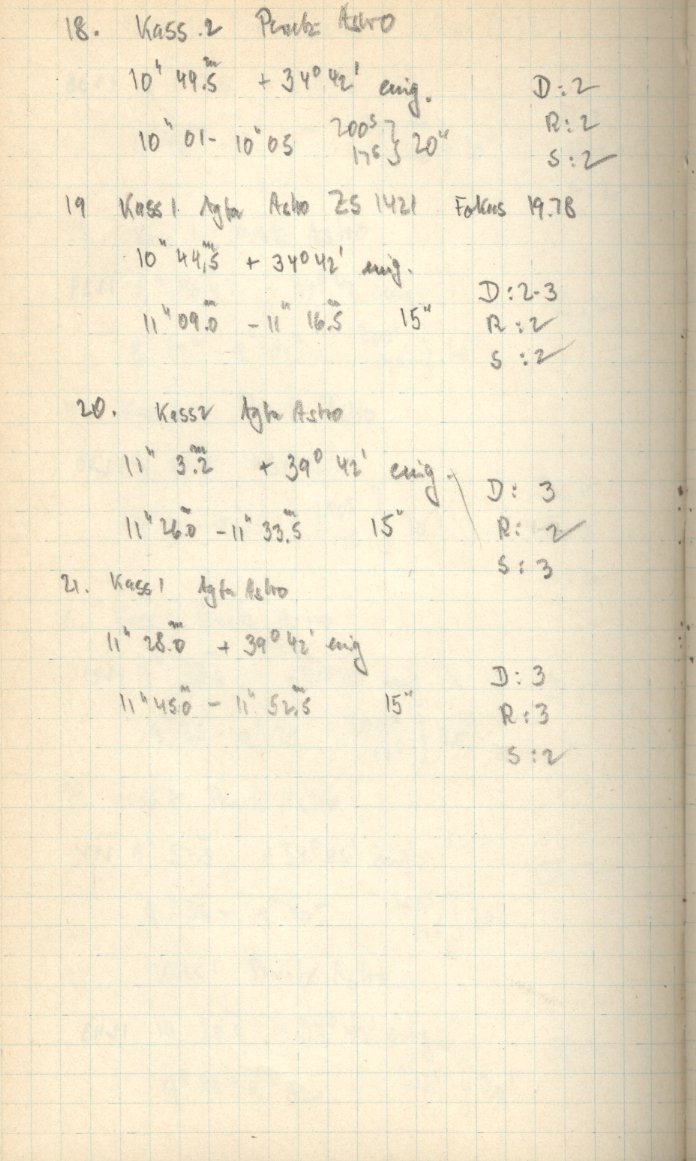 18. Kass. 2 Perutz Astro
10ʰ 49.ᵐ5 + 34⁰ 42' D: 2
10ʰ 01 - 10ʰ 05 200ˢ } 20ʰ R: 2
17ˢ S: 2
19 Kass 1 Agfa Astro ZS 1421 Fokus 19.78
10ʰ 44,ᵐ5 + 34⁰ 42'
D: 2-3
11ʰ 09.ᵐ0 - 11ʰ 16.ᵐ5 15" R: 2
S: 2
20. Kass 2 Agfa Astro
11ʰ 3.ᵐ2 + 39⁰ 42' D: 3
11ʰ 26.ᵐ0 - 11ʰ 33.ᵐ5 15" R: 2
S: 3
21. Kass 1 Agfa Astro
11ʰ 28.ᵐ0 + 39⁰ 42'
D: 3
11ʰ 45.ᵐ0 - 11ʰ 52.ᵐ5 15" R: 3
S: 2